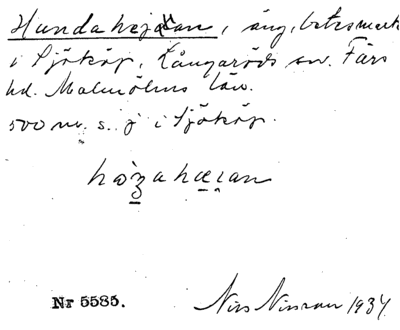 Hundahejan, äng, betesmark
i Sjököp, Långaröds sn. Färs
hd. Malmöhus län.
500 m. s. j i Sjököp.
Nr 5585. Nils Nilsson 1934